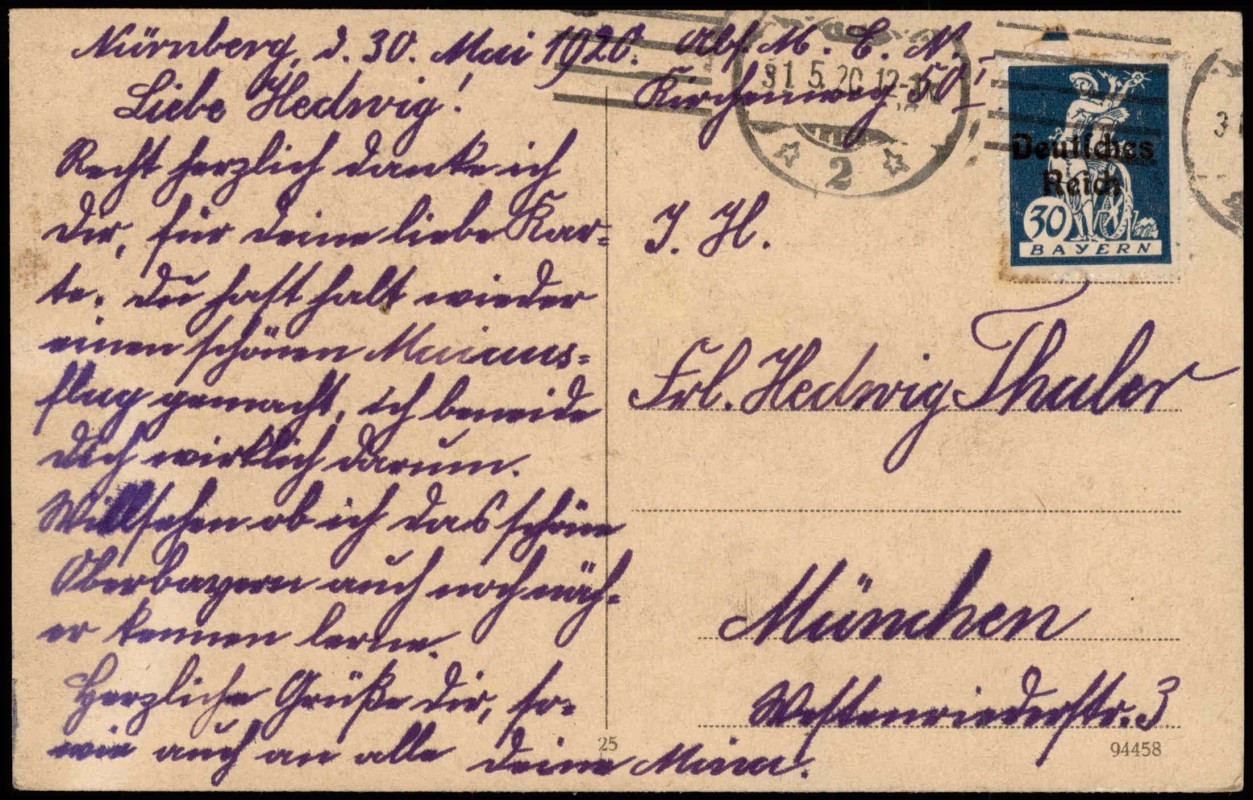 Nürnberg, d. 30. Mai 1920.
Liebe Hedwig!
Recht herzlich danke ich
dir, für deine liebe Kar=
te. Du hast halt wieder
einen schönen Maiaus=
flug gemacht, ich beneide
dich wirklich darum.
Will sehen ob ich das schöne
Oberbayern auch noch näh=
er kennen lerne.
Herzliche Grüße dir, so=
wie auch an alle deine Minna.
Abs. M. E. N.
Kirchenweg 50I
31.5.20.12-1N
2
Deutsches
Reich
30
BAYERN
J. H.
Frl. Hedwig Thaler
München
Westenriederstr. 3
25
94458